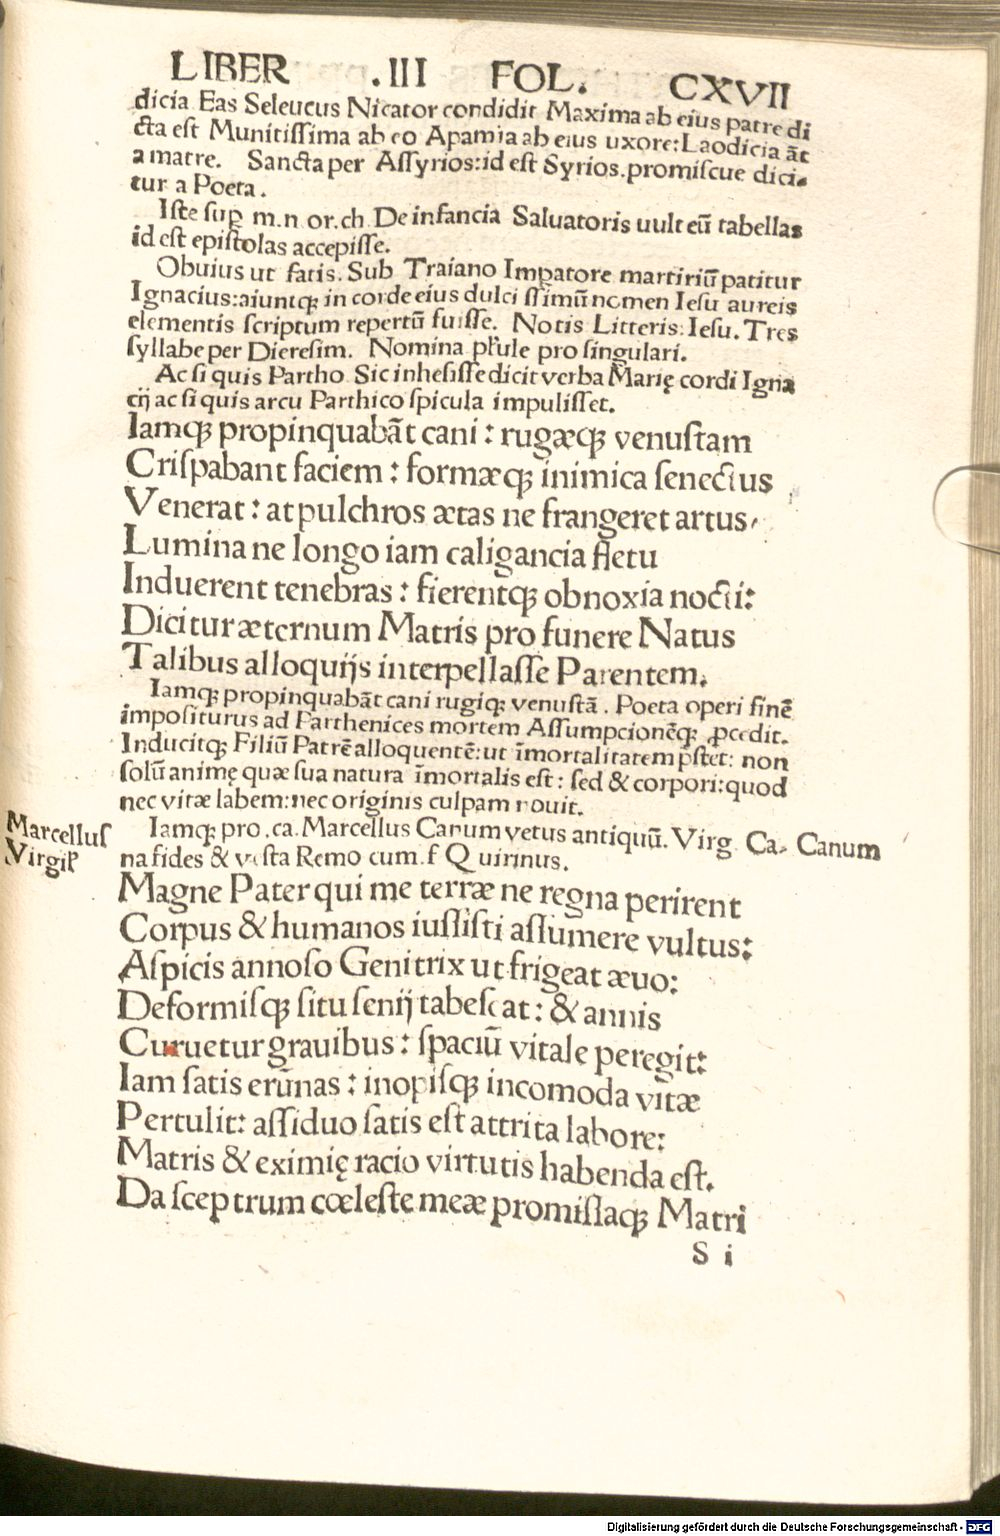 LIBER .III FOL. CXVII
dicia Eas Seleucus Nicator condidit Maxima ab eius patre di
cta est Munitiſſima ab eo Apamia ab eius uxore: Laodicia āt
a matre. Sancta per Aſſyrios: id est Syrios. promiſcue dici⸗
tur a Poeta.
Iſte ſuꝑ m.n or.ch De infancia Saluatoris uult eū tabellas
id est epiſtolas accepiſſe.
Obuius ut ſatis. Sub Traiano Imꝑatore martiriū patitur
Ignacius: aiuntqꝫ in corde eius dulci ſſimū nomen Iesu aureis
elementis ſcriptum repertū fuiſſe. Notis Litteris: Iesu. Tres
ſyllabe per Dieresim. Nomina pľule pro ſingulari.
Ac ſi quis Partho Sic inhesiſſe dicit verba Marię cordi Igna
cij ac ſi quis arcu Parthico ſpicula impuliſſet.
Iamqꝫ propinquabāt cani : rugæqꝫ venuſtam
Criſpabant faciem : formæqꝫ inimica ſenectus
Venerat : at pulchros ætas ne frangeret artus,
Lumina ne longo iam caligancia fletu
Induerent tenebras : fierentqꝫ obnoxia nocti:
Dicitur æternum Matris pro funere Natus
Talibus alloquijs interpellaſſe Parentem.
Iamqꝫ propinquabāt cani rugiqꝫ venuſtā . Poeta operi finē
impoſiturus ad Parthenices mortem Aſſumpcionēqꝫ ꝓcedit.
Inducitqꝫ Filiū Patrē alloquentē: ut īmortalitatem p̄ſtet: non
ſolū animę quæ sua natura īmortalis est : ſed & corpori: quod
nec vitæ labem: nec originis culpam nouit.
Marcellus
Virgiľ
Iamqꝫ pro .ca. Marcellus Canum vetus antiquū. Virg Ca⸗ Canum
na fides & veſta Remo cum. f Quirinus.
Magne Pater qui me terræ ne regna perirent
Corpus & humanos iuſſiſti aſſumere vultus:
Aſpicis annoſo Genitrix ut frigeat æuo:
Deformiſqꝫ ſitu ſenij tabeſcat : & annis
Curuetur grauibus : ſpaciū vitale peregit:
Iam ſatis erūnas : inopiſqꝫ incomoda vitæ
Pertulit: aſſiduo ſatis est attrita labore:
Matris & eximię racio virtutis habenda eſt.
Da ſceptrum cœleſte meæ promiſſaqꝫ Matri
S i
Digitalisierung gefördert durch die Deutsche Forschungsgemeinschaft - DFG